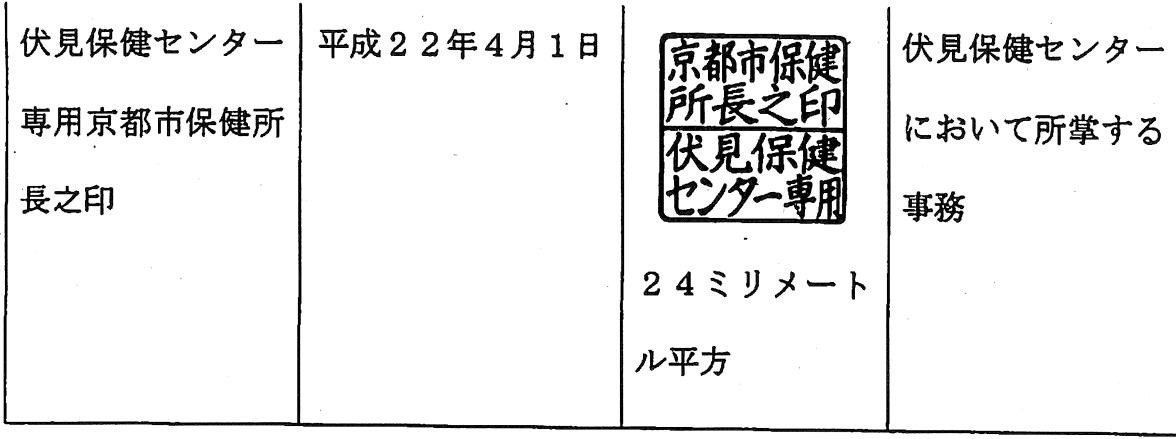 伏見保健センター
専用京都市保健所
長之印
平成２２年４月１日
京都市保健
所長之印
伏見保健
センター専用
２４ミリメート
ル平方
伏見保健センター
において所掌する
事務